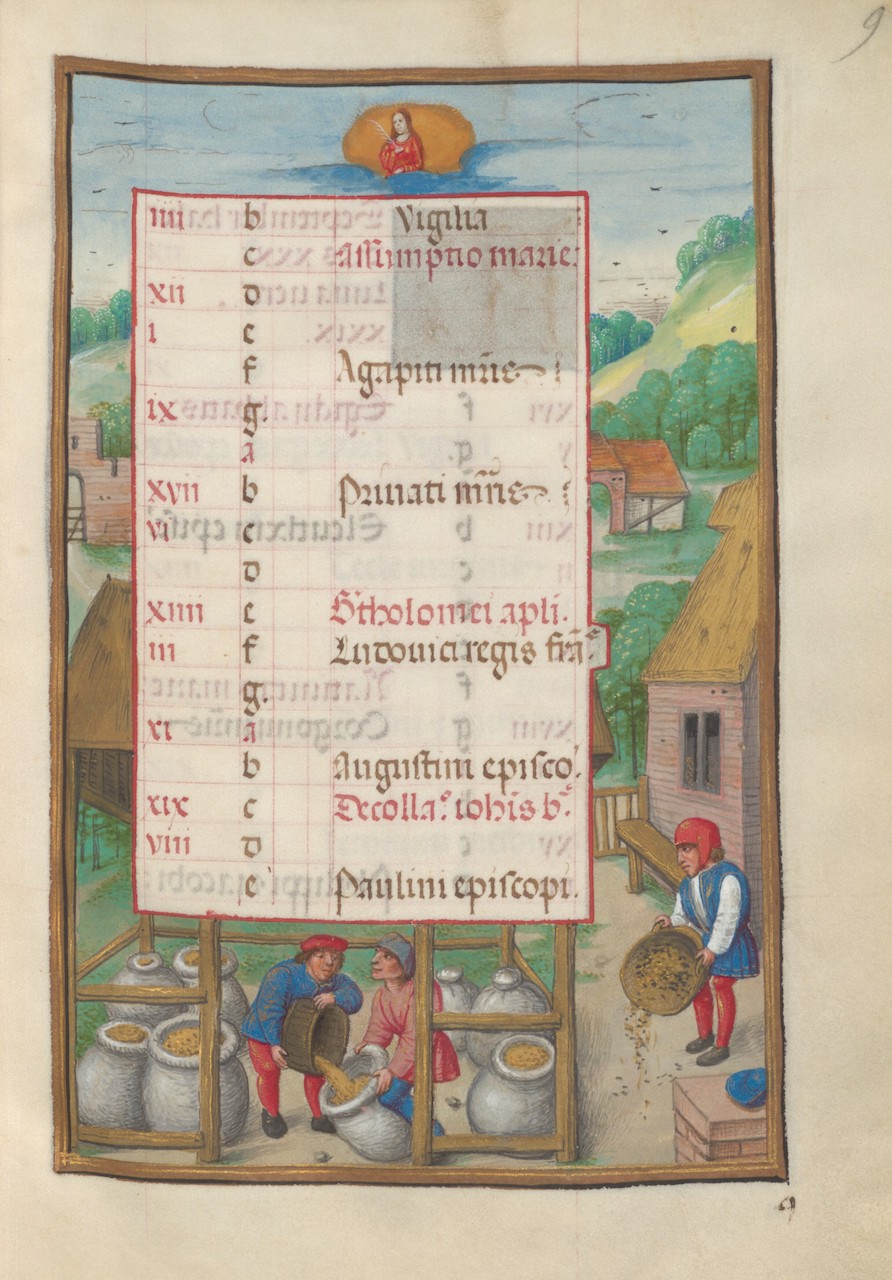 9
iiii b Vigilia
c Assumptio marie.
xii d
i e
f Agapiti mr̄is
ix g.
a
xvii b Priuati mr̄is
vi c
d
xiiii e B'tholomei apli.
iii f Ludouici regis frā
g.
xi a
b Augustini episco.
xix c Decolla. iohīs b.
viii d
e Paulini episcopi.